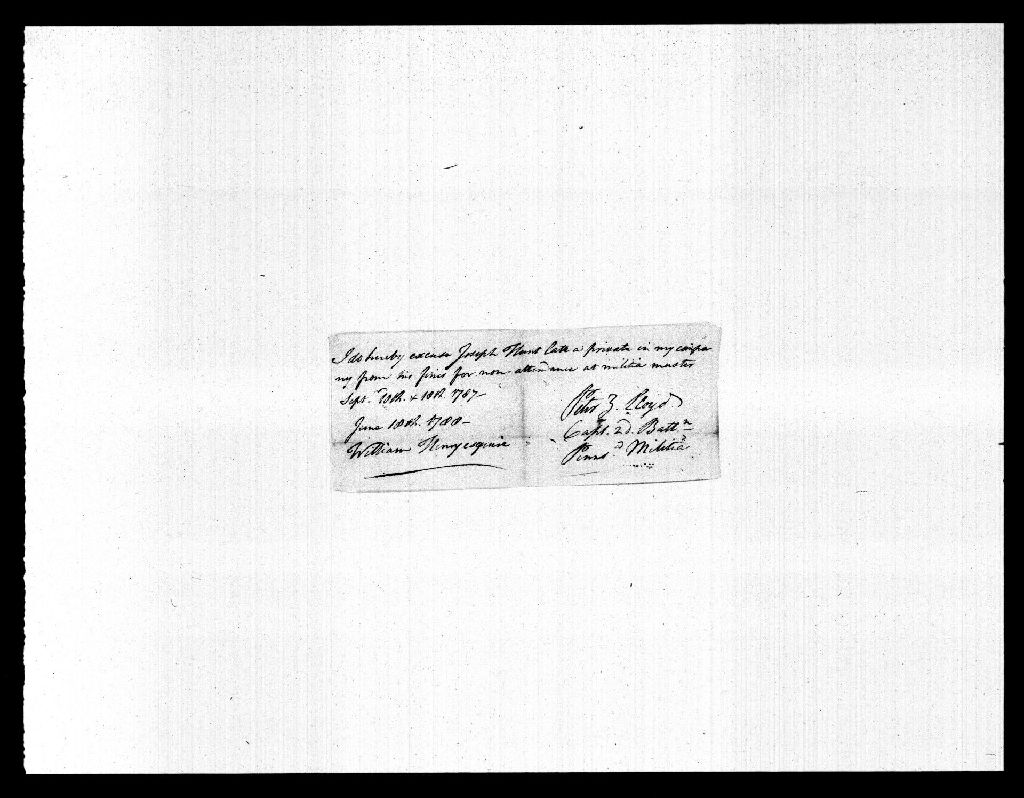 I do hereby excuse Joseph Hunt late a private in my compa
ny from his fines for non attendance at militia muster
Sept. & 18th. 1787—
June 18th. 1788—
William Henry esquire
Peter Z. Lloyd
Capt. 2d. Battn
Militia